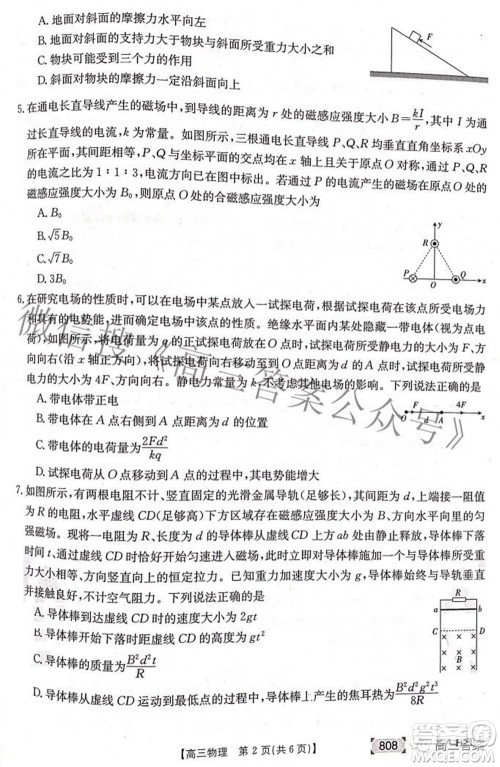 A. 地面对斜面的摩擦力水平向左
B. 地面对斜面的支持力大于物块与斜面所受重力大小之和
C. 物块可能受三个力的作用
D. 斜面对物块的摩擦力一定沿斜面向上
F
5. 在通电长直导线产生的磁场中,到导线的距离为 r 处的磁感应强度大小 B=kI/r,其中 I 为通过长
直导线的电流,k 为常量。如图所示,三根通电长直导线 P、Q、R 均垂直直角坐标系 xOy
所在的纸面,P、Q 与坐标平面的交点均在 x 轴上且关于原点 O 对称,通过 P、Q、R 的电流
之比为 1∶1∶3,电流方向已在图中标出。若 P 的电流产生的磁场在原点 O 处的
磁感应强度大小为 B₀,则原点 O 处的合磁感应强度大小为
A. B₀
B. √5B₀
C.
D. 3B₀
y
R
P
O
Q
x
6. 在研究电场的性质时,可以在电场中某点放入一试探电荷,根据试探电荷在该点所受电场力
和具有的电势能,进而确定电场中该点的性质。绝缘水平方面内某处隐藏一带电体(视为点电
荷),如图所示,将电荷量为 q 的试探电荷放在 O 点时,试探电荷所受静电力的大小为 F、方
向向右(沿 x 轴正方向),将试探电荷向右移动距离 d 到 A 点时,试探电荷所受静电
力的大小为 4F、方向向右。静电力常量为 k,下列说法正确的是
A. 带电体带正电
B. 带电体在 A 点右侧到 A 点距离为 d 的位置
C. 带电体的电荷量为 2Fd²/kq
D. 试探电荷从 O 点移动到 A 点的过程中,其电势能增大
O
F
d
A
4F
x
7. 如图所示,有两根电阻不计、竖直固定的光滑金属导轨(足够长),其间距为 d,上端接一阻值
为 R 的电阻,水平虚线 CD(足够长)下方区域存在磁感应强度大小为 B、方向垂直纸面向里的匀
强磁场。现将一电阻也为 R 的导体棒从虚线 CD 上方 ab 处由静止释放,导体棒下落
时间 t 时通过虚线 CD 时恰好开始匀速进入磁场。已知重力加速度大小为 g,导体棒通
过虚线 CD 后向下运动的时间也为 t,导体棒始终与导轨垂直
并接触良好,不计空气阻力。下列说法正确的是
A. 导体棒到达虚线 CD 时的速度大小为 2gt
B. 导体棒开始下落时距虚线 CD 的高度 gt²
C. 导体棒的质量为 B²d²t/R
D. 导体棒从虚线 CD 运动到最终位置的过程中,电阻产生的焦耳热为 B²d²g²t³/8R
R
a
b
C
D
【高三物理 第 2 页(共 6 页)】
808
高三答案
微信搜《高三答案公众号》